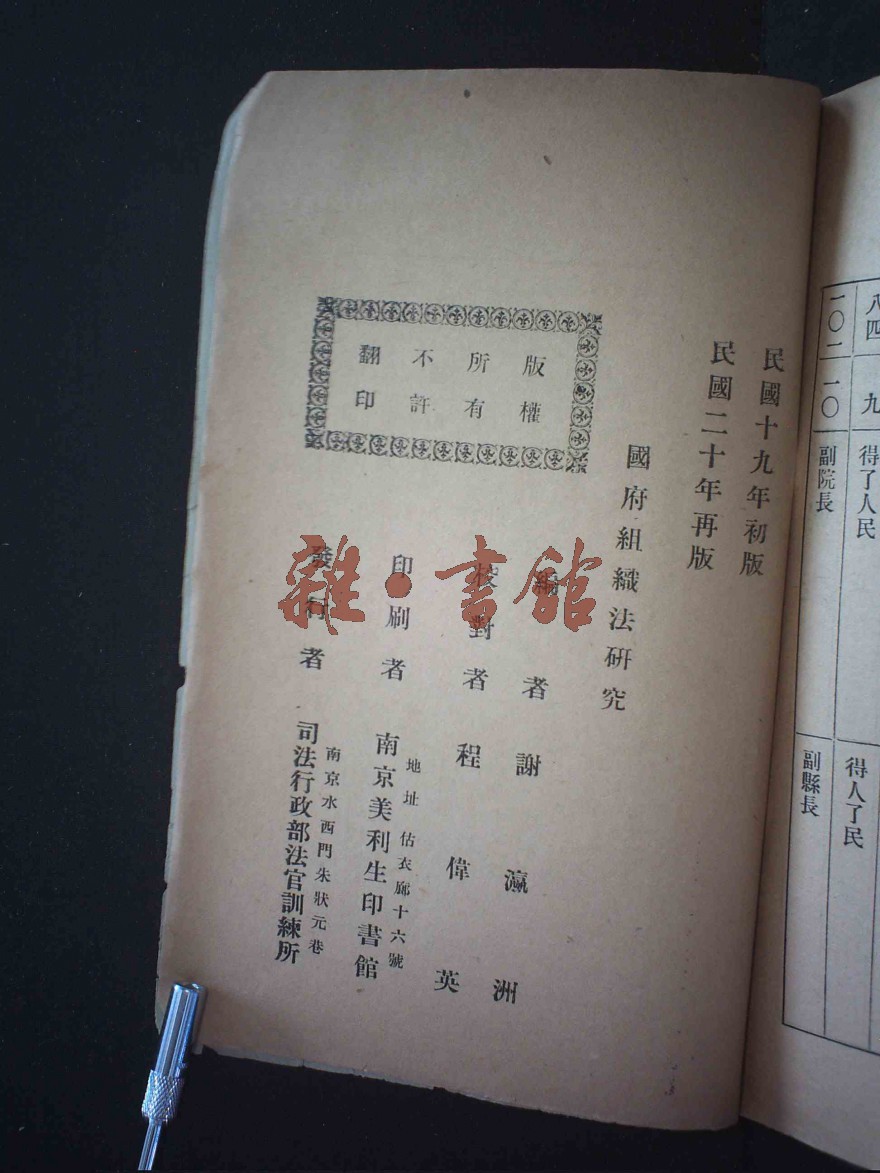 民國十九年初版
民國二十年再版
國府組織法研究
版權
所有
不許
翻印
編者 謝瀛洲
校對者 程偉英
印刷者 南京美利生印書館
地址估衣廊十六號
發行者 司法行政部法官訓練所
南京水西門朱狀元巷
雜·書館
八四
九
得了人民
得人了民
一〇二
一〇
副院長
副縣長